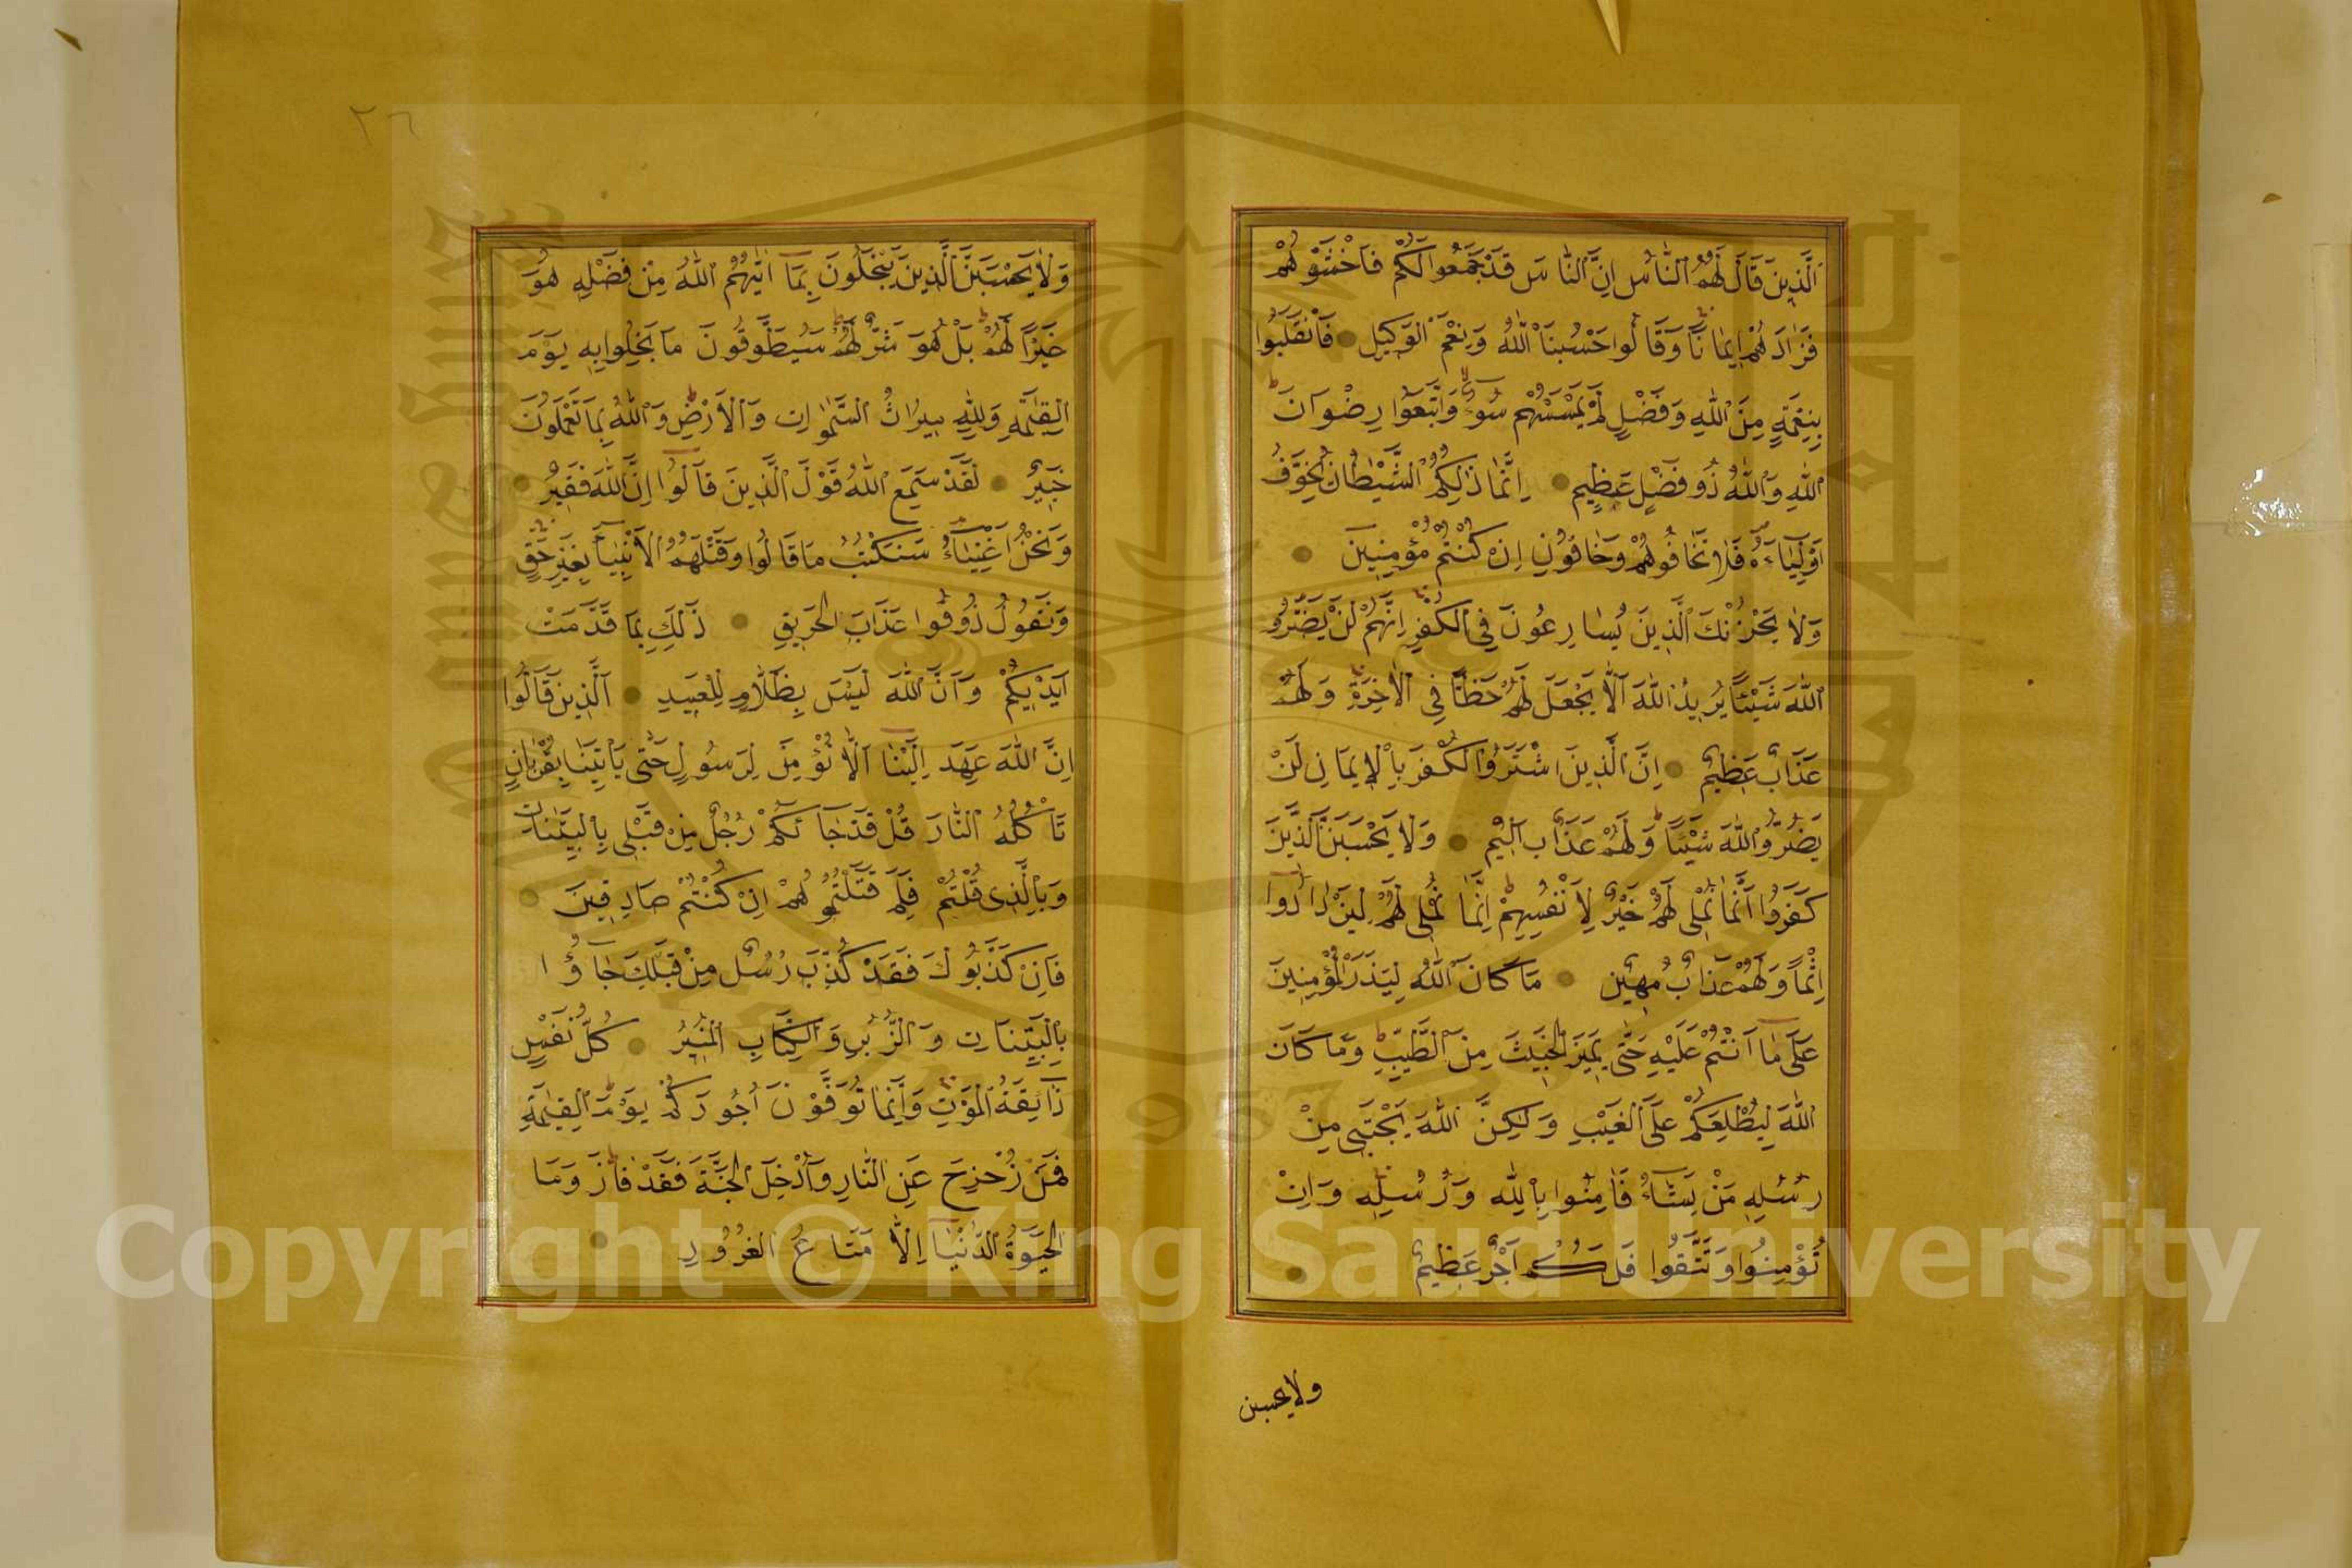 اَلَّذِينَ قَالَ لَهُمُ النَّاسُ اِنَّ النَّاسَ قَدْ جَمَعُوا لَكُمْ فَاخْشَوْهُمْ
فَزَادَهُمْ اِيمَانًا وَقَالُوا حَسْبُنَا اللّٰهُ وَنِعْمَ الْوَكِيلِ فَانْقَلَبُوا
بِنِعْمَةٍ مِنَ اللّٰهِ وَفَضْلٍ لَمْ يَمْسَسْهُمْ سُوءٌ وَاتَّبَعُوا رِضْوَانَ
اللّٰهِ وَاللّٰهُ ذُو فَضْلٍ عَظِيمٍ اِنَّمَا ذٰلِكُمُ الشَّيْطَانُ يُخَوِّفُ
اَوْلِيَاءَهُ فَلَا تَخَافُوهُمْ وَخَافُونِ اِنْ كُنْتُمْ مُؤْمِنِينَ
وَلَا يَحْزُنْكَ الَّذِينَ يُسَارِعُونَ فِي الْكُفْرِ اِنَّهُمْ لَنْ يَضُرُّو
اللّٰهَ شَيْئًا يُرِيدُ اللّٰهُ اَلَّا يَجْعَلَ لَهُمْ حَظًّا فِي الْاٰخِرَةِ وَلَهُمْ
عَذَابٌ عَظِيمٌ اِنَّ الَّذِينَ اشْتَرَوُا الْكُفْرَ بِالْاِيمَانِ لَنْ
يَضُرُّوا اللّٰهَ شَيْئًا وَلَهُمْ عَذَابٌ اَلِيمٌ وَلَا يَحْسَبَنَّ الَّذِينَ
كَفَرُوا اَنَّمَا نُمْلِى لَهُمْ خَيْرٌ لِاَنْفُسِهِمْ اِنَّمَا نُمْلِى لَهُمْ لِيَزْدَادُوا
اِثْمًا وَلَهُمْ عَذَابٌ مُهِينٌ مَا كَانَ اللّٰهُ لِيَذَرَ الْمُؤْمِنِينَ
عَلٰى مَا اَنْتُمْ عَلَيْهِ حَتّٰى يَمِيزَ الْخَبِيثَ مِنَ الطَّيِّبِ وَمَا كَانَ
اللّٰهُ لِيُطْلِعَكُمْ عَلَى الْغَيْبِ وَلٰكِنَّ اللّٰهَ يَجْتَبِى مِنْ
رُسُلِهِ مَنْ يَشَاءُ فَاٰمِنُوا بِاللّٰهِ وَرُسُلِهِ وَاِنْ
تُؤْمِنُوا وَتَتَّقُوا فَلَكُمْ اَجْرٌ عَظِيمٌ
ولا يحسبن
٢٦
وَلَا يَحْسَبَنَّ الَّذِينَ يَبْخَلُونَ بِمَا اٰتٰيهُمُ اللّٰهُ مِنْ فَضْلِهِ هُوَ
خَيْرًا لَهُمْ بَلْ هُوَ شَرٌّ لَهُمْ سَيُطَوَّقُونَ مَا بَخِلُوا بِهِ يَوْمَ
الْقِيٰمَةِ وَلِلّٰهِ مِيرَاثُ السَّمٰوَاتِ وَالْاَرْضِ وَاللّٰهُ بِمَا تَعْمَلُونَ
خَبِيرٌ لَقَدْ سَمِعَ اللّٰهُ قَوْلَ الَّذِينَ قَالُوا اِنَّ اللّٰهَ فَقِيرٌ
وَنَحْنُ اَغْنِيَاءُ سَنَكْتُبُ مَا قَالُوا وَقَتْلَهُمُ الْاَنْبِيَاءَ بِغَيْرِ حَقٍّ
وَنَقُولُ ذُوقُوا عَذَابَ الْحَرِيقِ ذٰلِكَ بِمَا قَدَّمَتْ
اَيْدِيكُمْ وَاَنَّ اللّٰهَ لَيْسَ بِظَلَّامٍ لِلْعَبِيدِ اَلَّذِينَ قَالُوا
اِنَّ اللّٰهَ عَهِدَ اِلَيْنَا اَلَّا نُؤْمِنَ لِرَسُولٍ حَتّٰى يَأْتِيَنَا بِقُرْبَانٍ
تَأْكُلُهُ النَّارُ قُلْ قَدْ جَاءَكُمْ رُسُلٌ مِنْ قَبْلِى بِالْبَيِّنَاتِ
وَبِالَّذِى قُلْتُمْ فَلِمَ قَتَلْتُمُوهُمْ اِنْ كُنْتُمْ صَادِقِينَ
فَاِنْ كَذَّبُوكَ فَقَدْ كُذِّبَ رُسُلٌ مِنْ قَبْلِكَ جَاؤُا
بِالْبَيِّنَاتِ وَالزُّبُرِ وَالْكِتَابِ الْمُنِيرِ كُلُّ نَفْسٍ
ذَائِقَةُ الْمَوْتِ وَاِنَّمَا تُوَفَّوْنَ اُجُورَكُمْ يَوْمَ الْقِيٰمَةِ
فَمَنْ زُحْزِحَ عَنِ النَّارِ وَاُدْخِلَ الْجَنَّةَ فَقَدْ فَازَ وَمَا
الْحَيٰوةُ الدُّنْيَا اِلَّا مَتَاعُ الْغُرُورِ
Copyright © King Saud University
1957